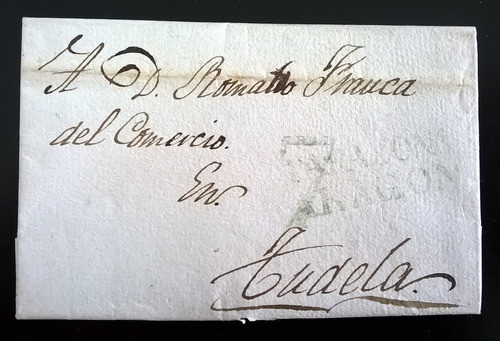 A D. Romaldo Franca
del Comercio.
En.
Tudela.